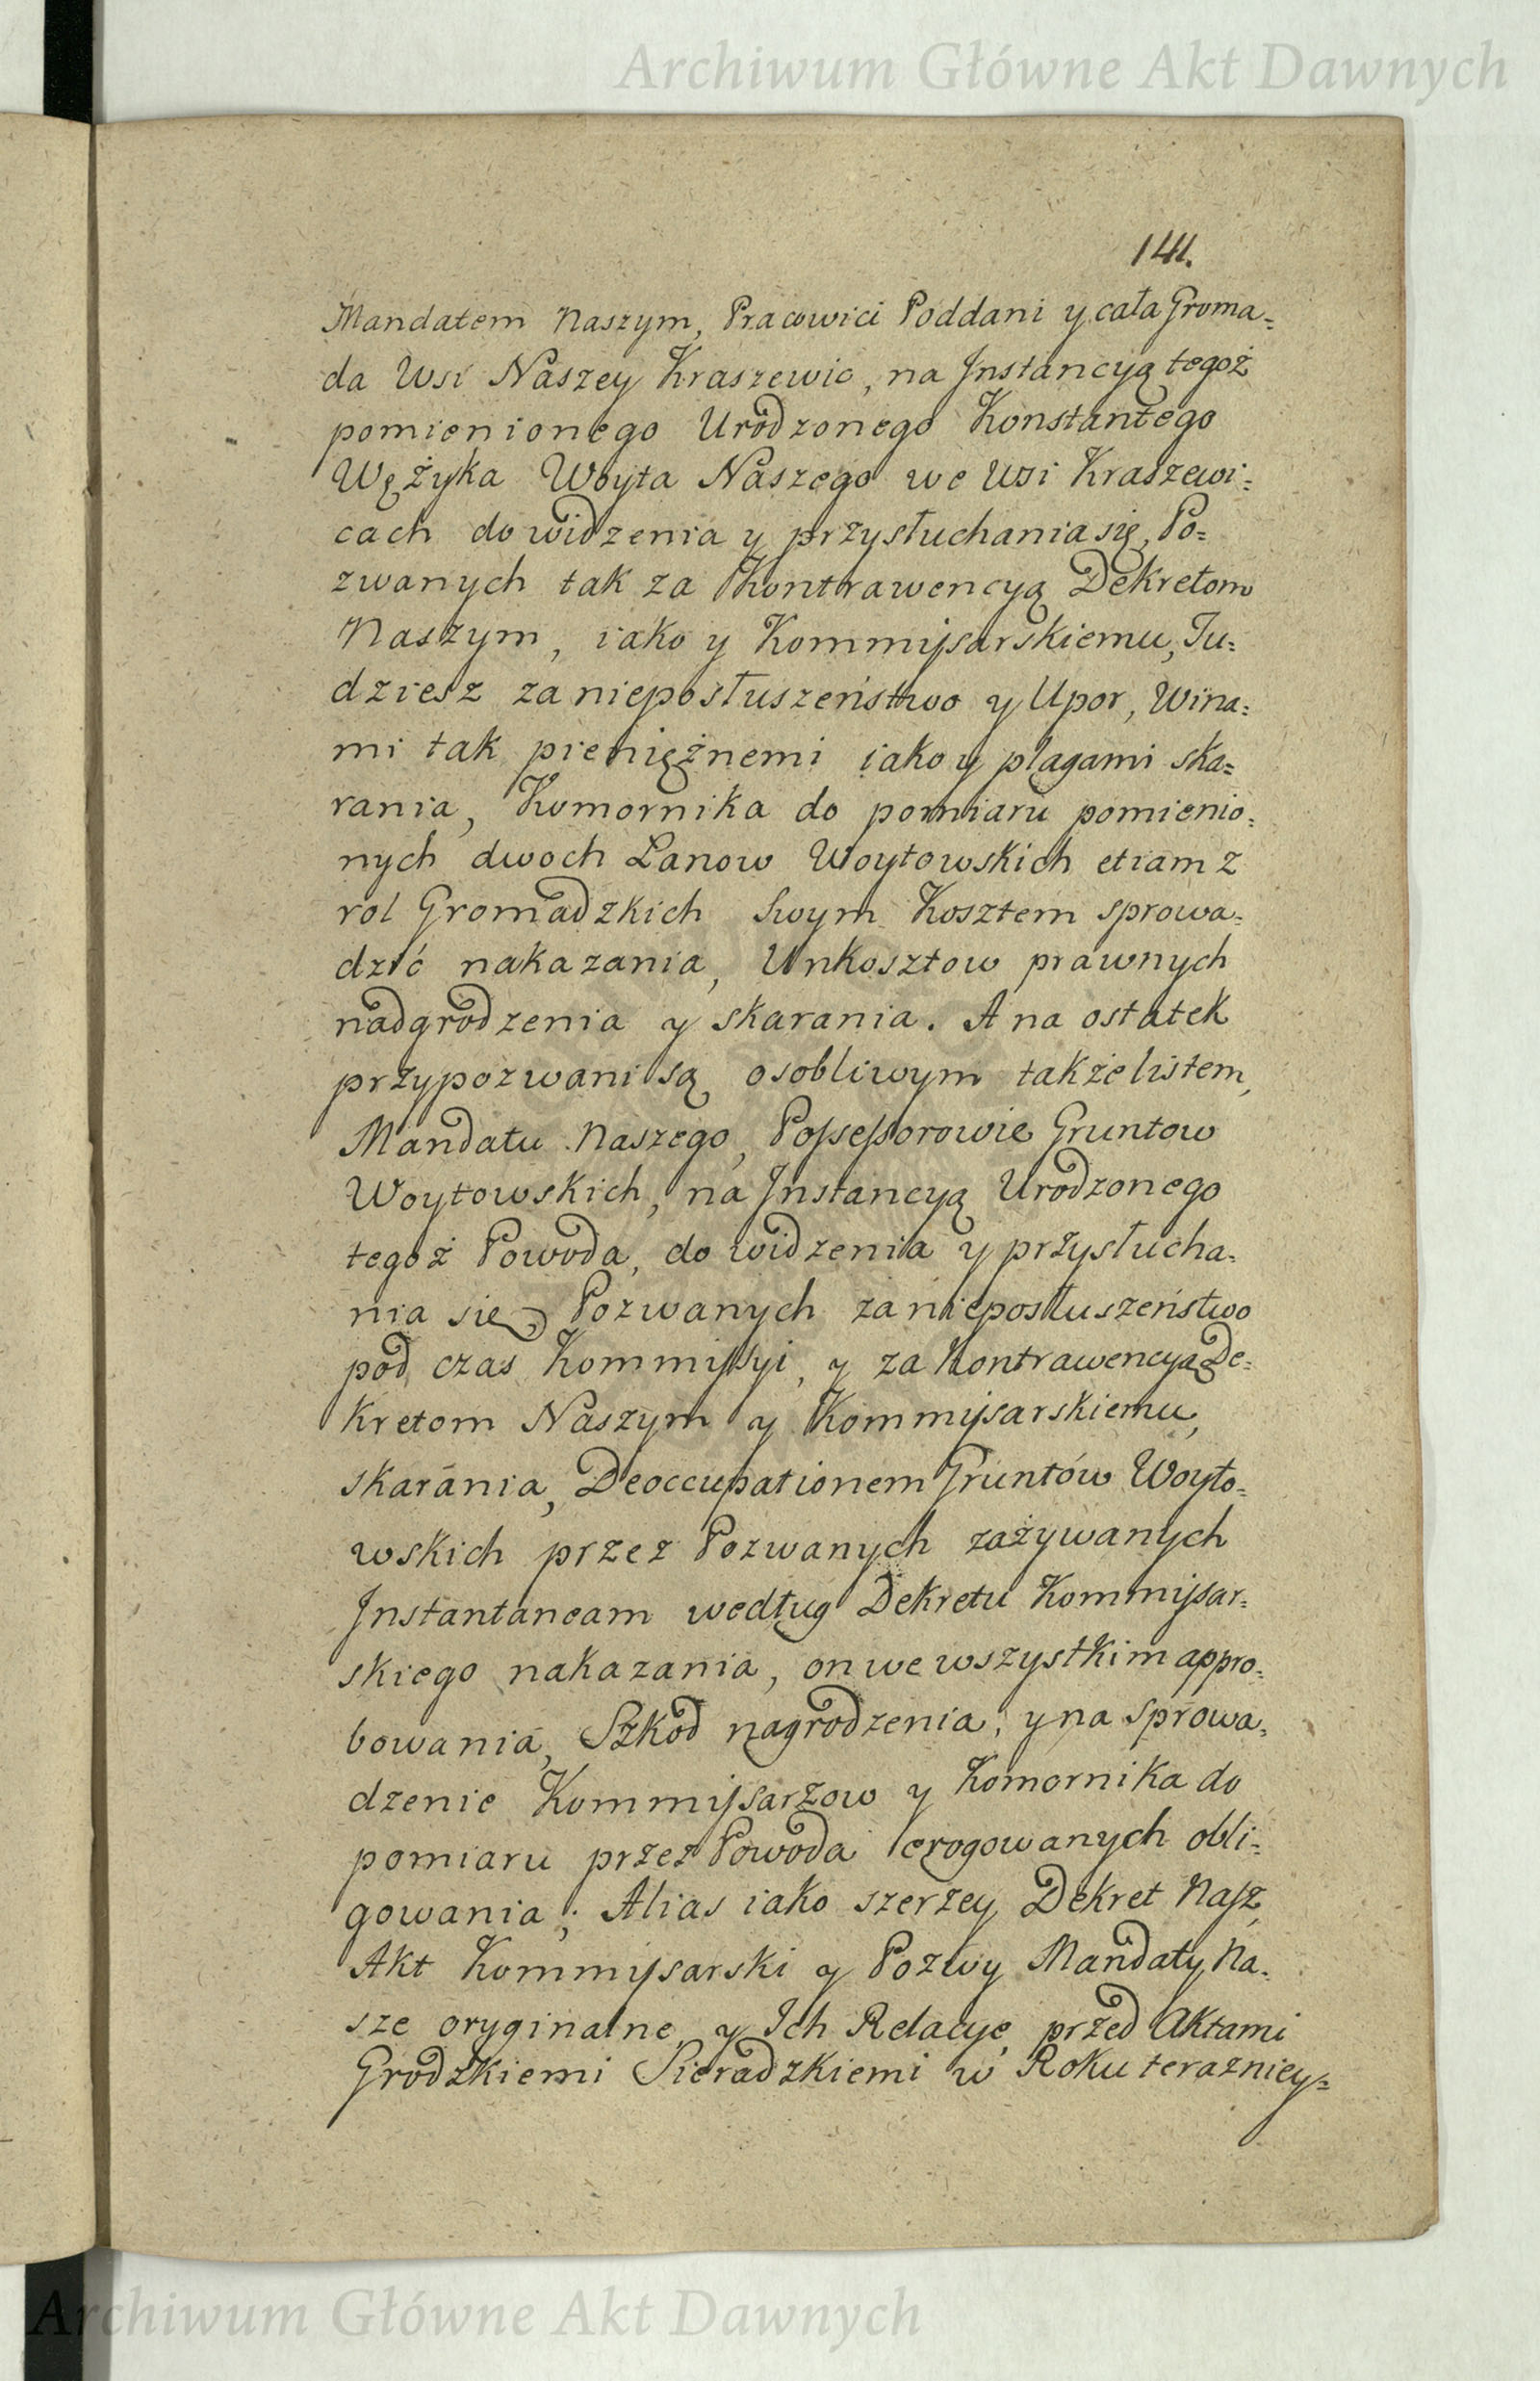 Archiwum Główne Akt Dawnych
141.
Mandatem Naszym, Pracowici Poddani y cała Groma=
da Wsi Naszey Kraszewic, na Jnstancyą tegoż
pomienionego Urodzonego Konstantego
Wężyka Woyta Naszego we Wsi Kraszewi=
cach do widzenia y przysłuchania się, Po=
zwanych tak za Kontrawencyą Dekretom
Naszym, iako y Kommissarskiemu, Tu=
dziesz za nieposłuszeństwo y Upor, Wina=
mi tak pieniężnemi iako y plagami ska=
rania, Komornika do pomiaru pomienio=
nych dwoch Lanow Woytowskich etiam z
rol Gromadzkich Swym Kosztem sprowa=
dzić nakazania, Unkosztow prawnych
nadgrodzenia y skarania. A na ostatek
przypozwani są osobliwym także listem,
Mandatu Naszego, Possessorowie Gruntow
Woytowskich, na Jnstancyą Urodzonego
tegoż Powoda, do widzenia y przysłucha=
nia się, Pozwanych za nieposłuszeństwo
pod czas Kommissyi, y za Kontrawencyą De=
kretom Naszym y Kommissarskiemu,
skarania, Deoccupationem Gruntów Woyto=
wskich przez Pozwanych zażywanych
Jnstantaneam według Dekretu Kommissar=
skiego nakazania, on we wszystkim appro=
bowania, Szkod nagrodzenia, y na sprowa=
dzenie Kommissarzow y Komornika do
pomiaru przez Powoda erogowanych obli=
gowania; Alias iako szerzey Dekret Nasz,
Akt Kommissarski y Pozwy Mandaty Na=
sze oryginalne, y Ich Relacye przed Aktami
Grodzkiemi Sieradzkiemi w Roku terazniey=
Archiwum Główne Akt Dawnych